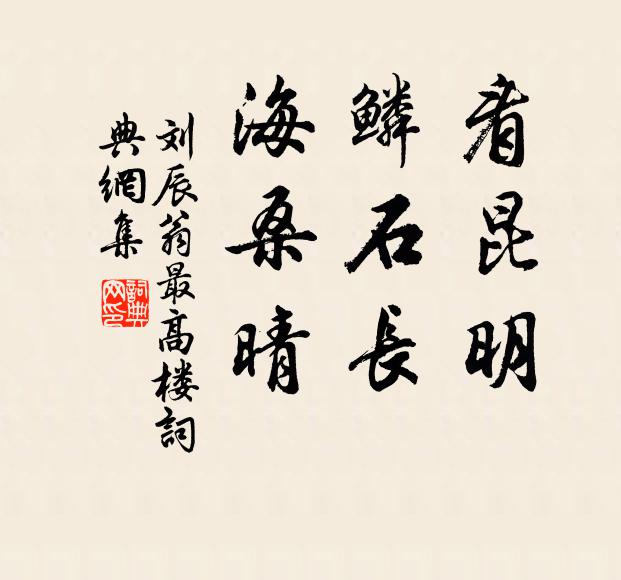 看昆明
鳞石長
海桑晴
刘辰翁最高楼詞
典網集
詞典
网印